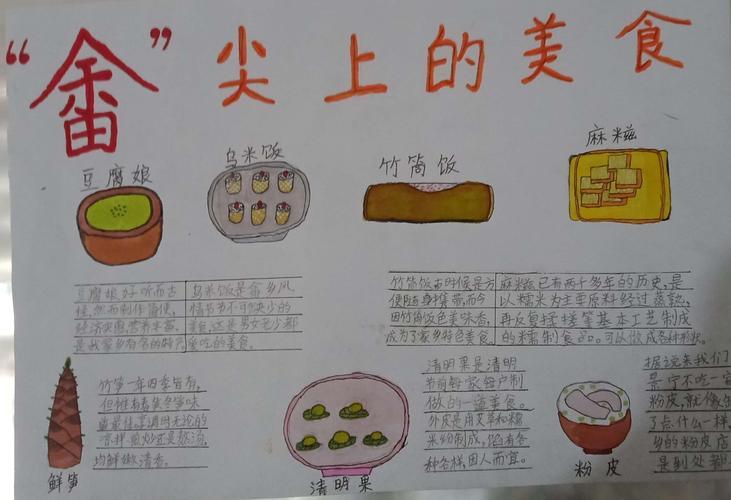 “畲”尖上的美食
豆腐娘
乌米饭
竹筒饭
麻糍
豆腐娘好听而古
怪,然而制作简便,
经济实惠,营养丰富,
是我家乡有名的特产
乌米饭是畲乡风
情节节不可缺少的
美食,这是男女老少都
爱吃的美食。
竹筒饭古时候是方
便随身携带,而今
因竹筒饭色美味香,
成为了家乡特色美食。
麻糍已有两千多年的历史,是
以糯米为主要原料经过蒸熟,
再反复揉搓等基本工艺制成
的糯制食品。可以做成各种形状。
鲜笋
竹笋一年四季皆有,
但惟有春笋冬笋味
道最佳,烹调用无论的
凉拌煎炒还是熬汤,
均鲜嫩清香。
清明果
清明果是清明
节前每家每户制
做的一道美食。
外皮是用艾草和糯
米纷制成,馅有各
种各样,因人而宜。
粉皮
据说来我们
景宁不吃一
粉皮,就像
了点什么一样,
乡的粉皮店
是到处都